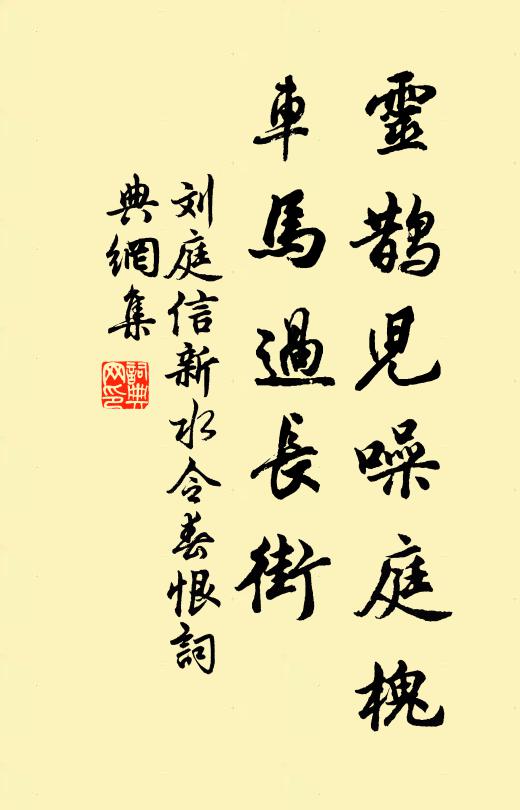 靈鵲児噪庭槐
車馬過長街
刘庭信新水令春恨詞
典網集
詞典
网印